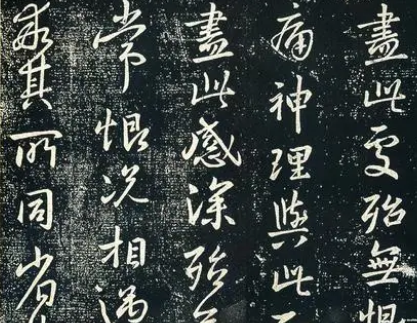 盡此殆無恨
痛神理與此
盡此感深殆
常恨況相遇
其所同